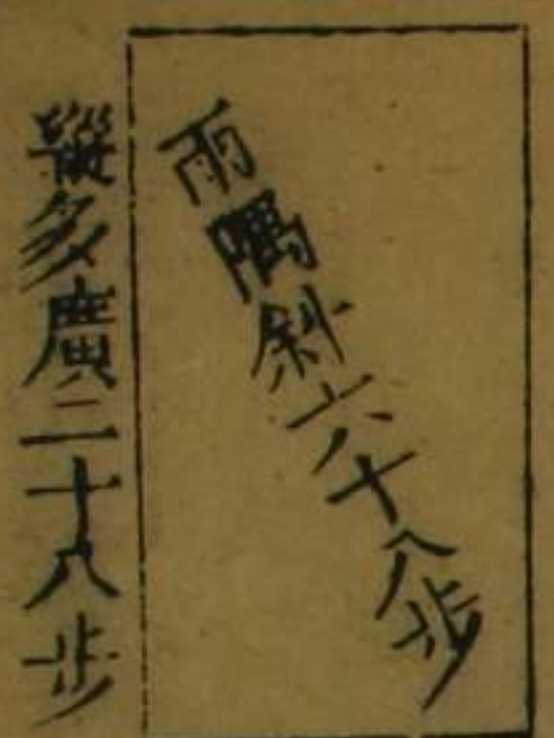 兩隅斜六十八步
縱多廣二十八步